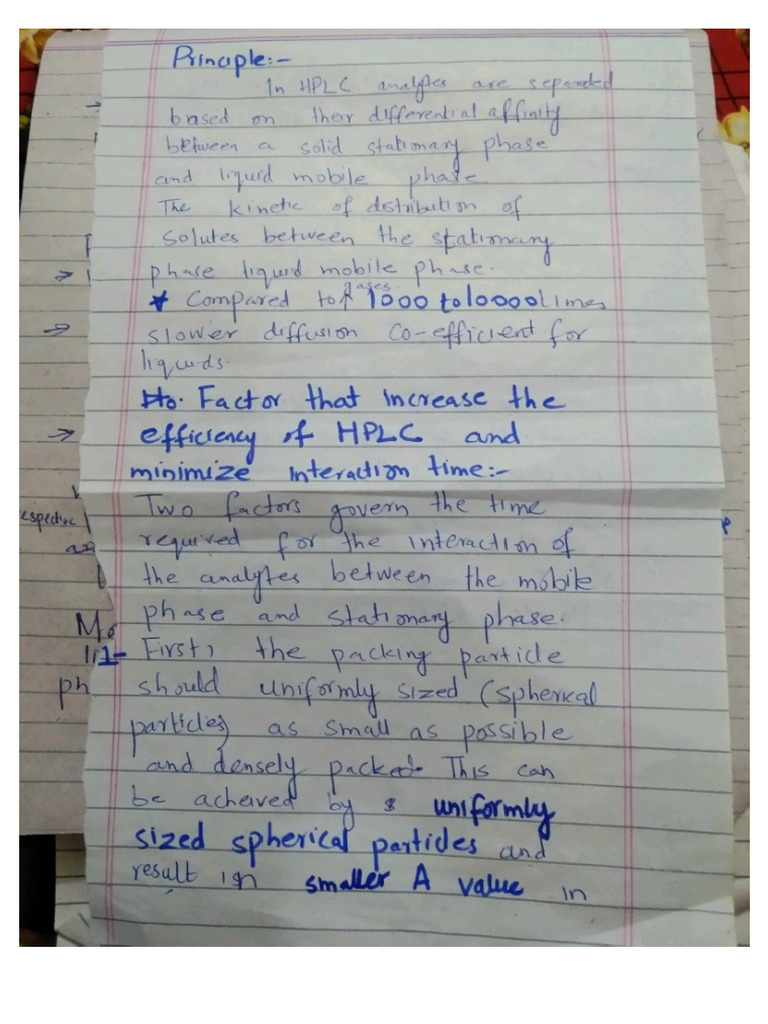 Principle:-
In HPLC analytes are separated
based on their differential affinity
between a solid stationary phase
and liquid mobile phase
The kinetic of distribution of
solutes between the stationary
phase liquid mobile phase.
* Compared to gases 1000 to 10000 times
slower diffusion co-efficient for
liquids.
Factor that increase the
efficiency of HPLC and
minimize interaction time:-
Two factors govern the time
required for the interaction of
the analytes between the mobile
phase and stationary phase.
1- First, the packing particle
should uniformly sized (spherical
particles) as small as possible
and densely packed. This can
be acheived by uniformly
sized spherical particles and
result in smaller A value in
espective
Mo
ph